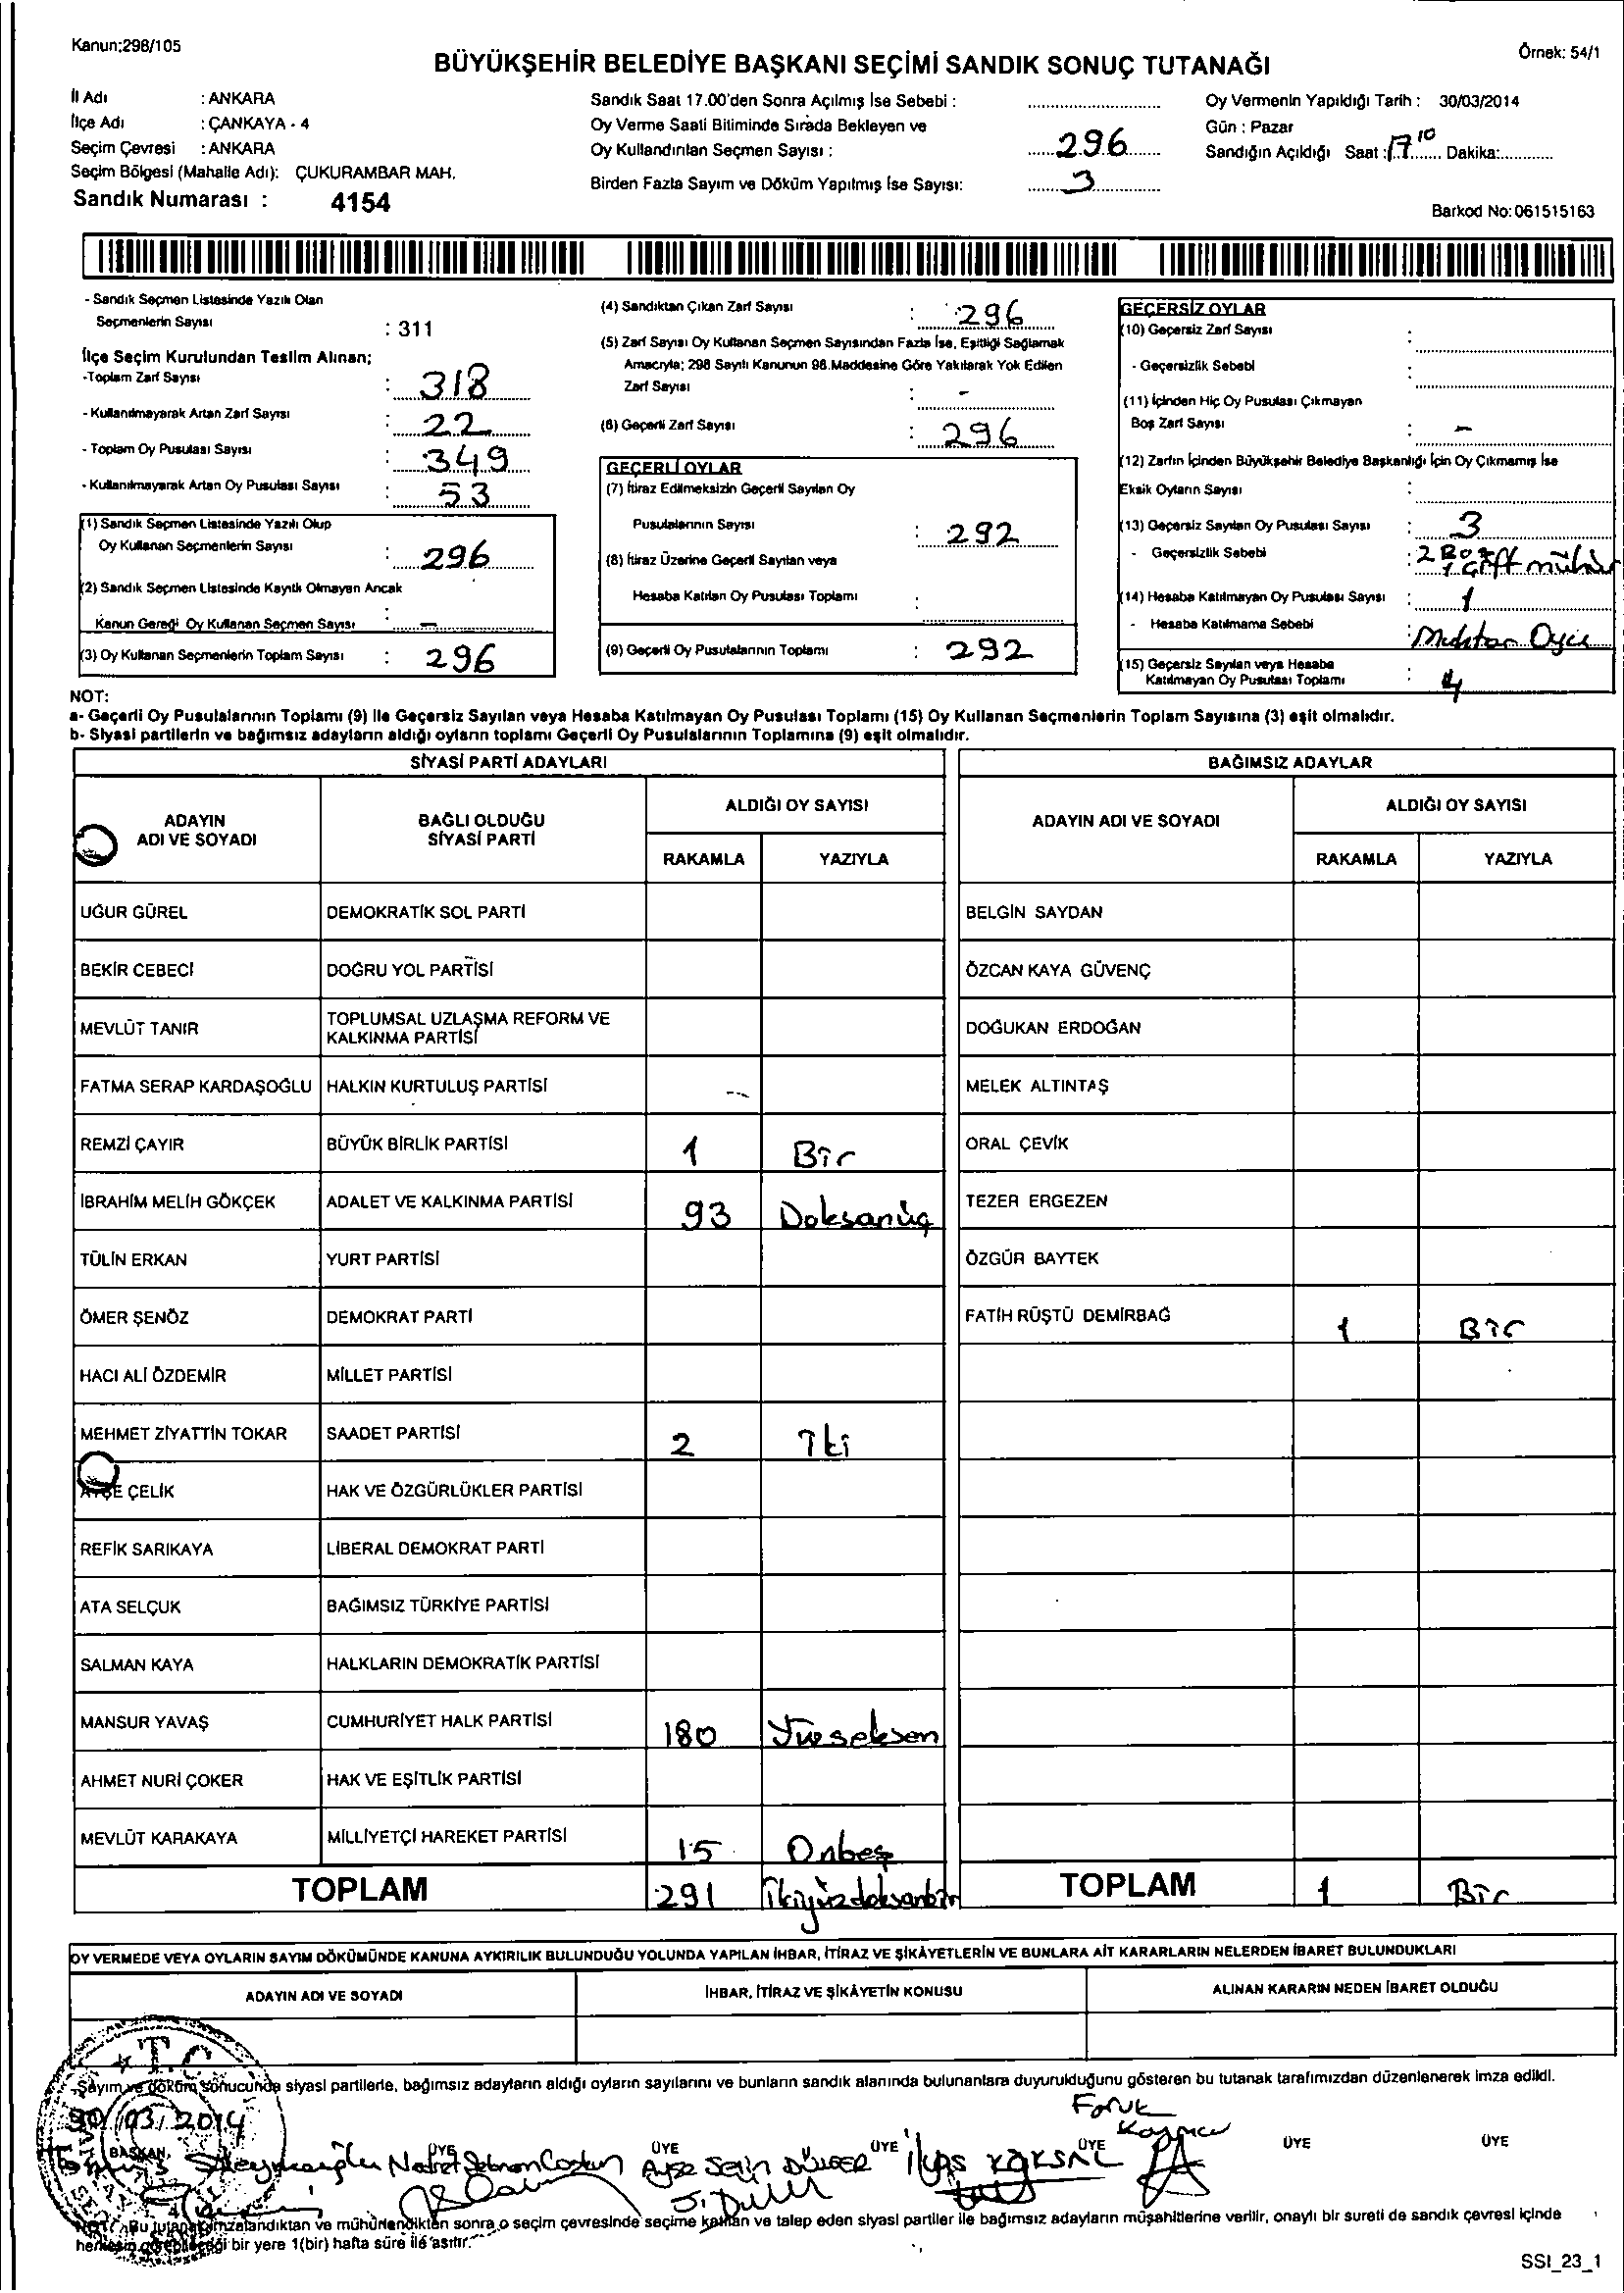 Kanun;298/105
Örnek: 54/1
BÜYÜKŞEHİR BELEDİYE BAŞKANI SEÇİMİ SANDIK SONUÇ TUTANAĞI
İl Adı : ANKARA
İlçe Adı : ÇANKAYA - 4
Seçim Çevresi : ANKARA
Seçim Bölgesi (Mahalle Adı): ÇUKURAMBAR MAH.
Sandık Numarası : 4154
Sandık Saat 17.00'den Sonra Açılmış İse Sebebi :
Oy Verme Saati Bitiminde Sırada Bekleyen ve
Oy Kullandırılan Seçmen Sayısı : 296
Birden Fazla Sayım ve Döküm Yapılmış İse Sayısı: 3
Oy Vermenin Yapıldığı Tarih : 30/03/2014
Gün : Pazar
Sandığın Açıldığı Saat : 17 10 Dakika:
Barkod No: 061515163
- Sandık Seçmen Listesinde Yazılı Olan
Seçmenlerin Sayısı : 311
İlçe Seçim Kurulundan Teslim Alınan;
-Toplam Zarf Sayısı : 318
- Kullanılmayarak Artan Zarf Sayısı : 22
- Toplam Oy Pusulası Sayısı : 349
- Kullanılmayarak Artan Oy Pusulası Sayısı : 53
(1) Sandık Seçmen Listesinde Yazılı Olup
Oy Kullanan Seçmenlerin Sayısı : 296
(2) Sandık Seçmen Listesinde Kayıtlı Olmayan Ancak
Kanun Gereği Oy Kullanan Seçmen Sayısı : -
(3) Oy Kullanan Seçmenlerin Toplam Sayısı : 296
(4) Sandıktan Çıkan Zarf Sayısı : 296
(5) Zarf Sayısı Oy Kullanan Seçmen Sayısından Fazla İse, Eşitliği Sağlamak
Amacıyla; 298 Sayılı Kanunun 98.Maddesine Göre Yakılarak Yok Edilen
Zarf Sayısı : -
(6) Geçerli Zarf Sayısı : 296
GEÇERLİ OYLAR
(7) İtiraz Edilmeksizin Geçerli Sayılan Oy
Pusulalarının Sayısı : 292
(8) İtiraz Üzerine Geçerli Sayılan veya
Hesaba Katılan Oy Pusulası Toplamı :
(9) Geçerli Oy Pusulalarının Toplamı : 292
GEÇERSİZ OYLAR
(10) Geçersiz Zarf Sayısı :
- Geçersizlik Sebebi :
(11) İçinden Hiç Oy Pusulası Çıkmayan
Boş Zarf Sayısı : -
(12) Zarfın İçinden Büyükşehir Belediye Başkanlığı İçin Oy Çıkmamış İse
Eksik Oyların Sayısı :
(13) Geçersiz Sayılan Oy Pusulası Sayısı : 3
- Geçersizlik Sebebi : 2 Boş
1 Çift mühür
(14) Hesaba Katılmayan Oy Pusulası Sayısı : 1
- Hesaba Katılmama Sebebi : Muhtar Oyu
(15) Geçersiz Sayılan veya Hesaba
Katılmayan Oy Pusulası Toplamı : 4
NOT:
a- Geçerli Oy Pusulalarının Toplamı (9) ile Geçersiz Sayılan veya Hesaba Katılmayan Oy Pusulası Toplamı (15) Oy Kullanan Seçmenlerin Toplam Sayısına (3) eşit olmalıdır.
b- Siyasi partilerin ve bağımsız adayların aldığı oyların toplamı Geçerli Oy Pusulalarının Toplamına (9) eşit olmalıdır.
SİYASİ PARTİ ADAYLARI
ADAYIN ADI VE SOYADI BAĞLI OLDUĞU SİYASİ PARTİ ALDIĞI OY SAYISI
RAKAMLA YAZIYLA
UĞUR GÜREL DEMOKRATİK SOL PARTİ
BEKİR CEBECİ DOĞRU YOL PARTİSİ
MEVLÜT TANIR TOPLUMSAL UZLAŞMA REFORM VE KALKINMA PARTİSİ
FATMA SERAP KARDAŞOĞLU HALKIN KURTULUŞ PARTİSİ
REMZİ ÇAYIR BÜYÜK BİRLİK PARTİSİ 1 Bir
İBRAHİM MELİH GÖKÇEK ADALET VE KALKINMA PARTİSİ 93 Doksanüç
TÜLİN ERKAN YURT PARTİSİ
ÖMER ŞENÖZ DEMOKRAT PARTİ
HACI ALİ ÖZDEMİR MİLLET PARTİSİ
MEHMET ZİYATTİN TOKAR SAADET PARTİSİ 2 İki
AYŞE ÇELİK HAK VE ÖZGÜRLÜKLER PARTİSİ
REFİK SARIKAYA LİBERAL DEMOKRAT PARTİ
ATA SELÇUK BAĞIMSIZ TÜRKİYE PARTİSİ
SALMAN KAYA HALKLARIN DEMOKRATİK PARTİSİ
MANSUR YAVAŞ CUMHURİYET HALK PARTİSİ 180 Yüzseksen
AHMET NURİ ÇOKER HAK VE EŞİTLİK PARTİSİ
MEVLÜT KARAKAYA MİLLİYETÇİ HAREKET PARTİSİ 15 Onbeş
TOPLAM 291 İkiyüzdoksanbir
BAĞIMSIZ ADAYLAR
ADAYIN ADI VE SOYADI ALDIĞI OY SAYISI
RAKAMLA YAZIYLA
BELGİN SAYDAN
ÖZCAN KAYA GÜVENÇ
DOĞUKAN ERDOĞAN
MELEK ALTINTAŞ
ORAL ÇEVİK
TEZER ERGEZEN
ÖZGÜR BAYTEK
FATİH RÜŞTÜ DEMİRBAĞ 1 Bir
TOPLAM 1 Bir
OY VERMEDE VEYA OYLARIN SAYIM DÖKÜMÜNDE KANUNA AYKIRILIK BULUNDUĞU YOLUNDA YAPILAN İHBAR, İTİRAZ VE ŞİKÂYETLERİN VE BUNLARA AİT KARARLARIN NELERDEN İBARET BULUNDUKLARI
ADAYIN ADI VE SOYADI İHBAR, İTİRAZ VE ŞİKÂYETİN KONUSU ALINAN KARARIN NEDEN İBARET OLDUĞU
T.C.
Sayım ve döküm sonucunda siyasi partilerle, bağımsız adayların aldığı oyların sayılarını ve bunların sandık alanında bulunanlara duyurulduğunu gösteren bu tutanak tarafımızdan düzenlenerek imza edildi.
30/03/2014
BAŞKAN ÜYE ÜYE ÜYE ÜYE ÜYE ÜYE
Ayşe Selin DÜLGER
İlyas KÖKSAL
Faruk
NOT: Bu tutanak imzalandıktan ve mühürlendikten sonra o seçim çevresinde seçime katılan ve talep eden siyasi partiler ile bağımsız adayların müşahitlerine verilir, onaylı bir sureti de sandık çevresi içinde
herkesin görebileceği bir yere 1(bir) hafta süre ile asılır.
SSI_23_1